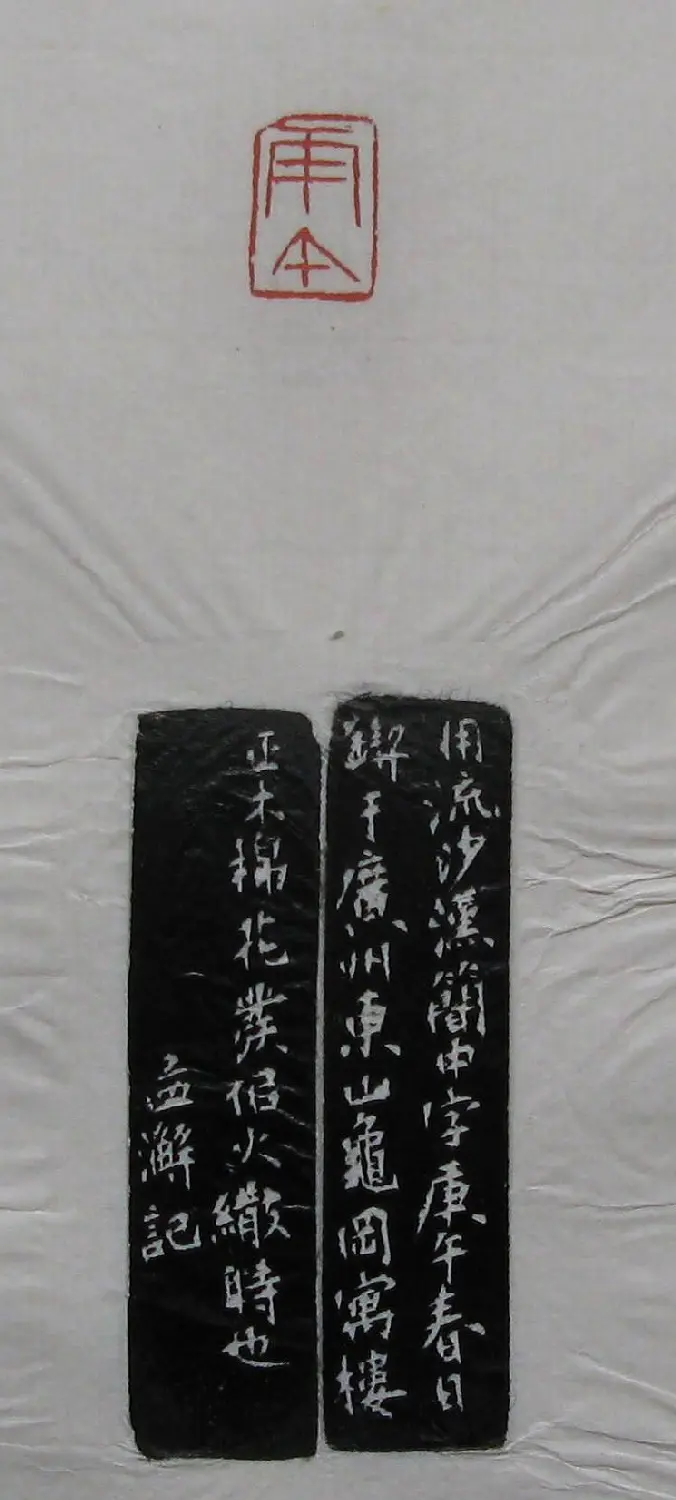 庚午
用流沙漢簡中字庚午春日
鍥于廣州東山龜岡寓樓
正木棉花發侣火繖時也
孟澥記